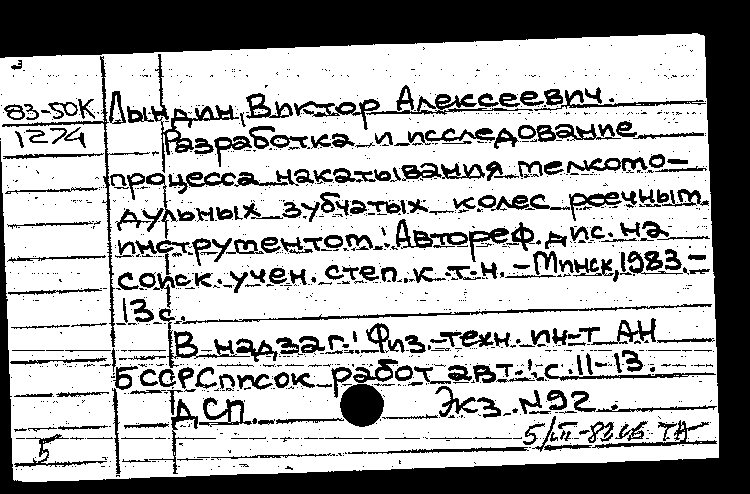 83-50К Лындин, Виктор Алексеевич.
1274 Разработка и исследование
процесса накатывания мелкомо-
дульных зубчатых колес реечным
инструментом: Автореф. дис. на
соиск. учен. степ. к.т.н. - Минск, 1983. -
13 с.
В надзаг.: Физ.-техн. ин-т АН
БССР. Список работ авт.: с. 11-13.
ДСП. Экз. №92.
5